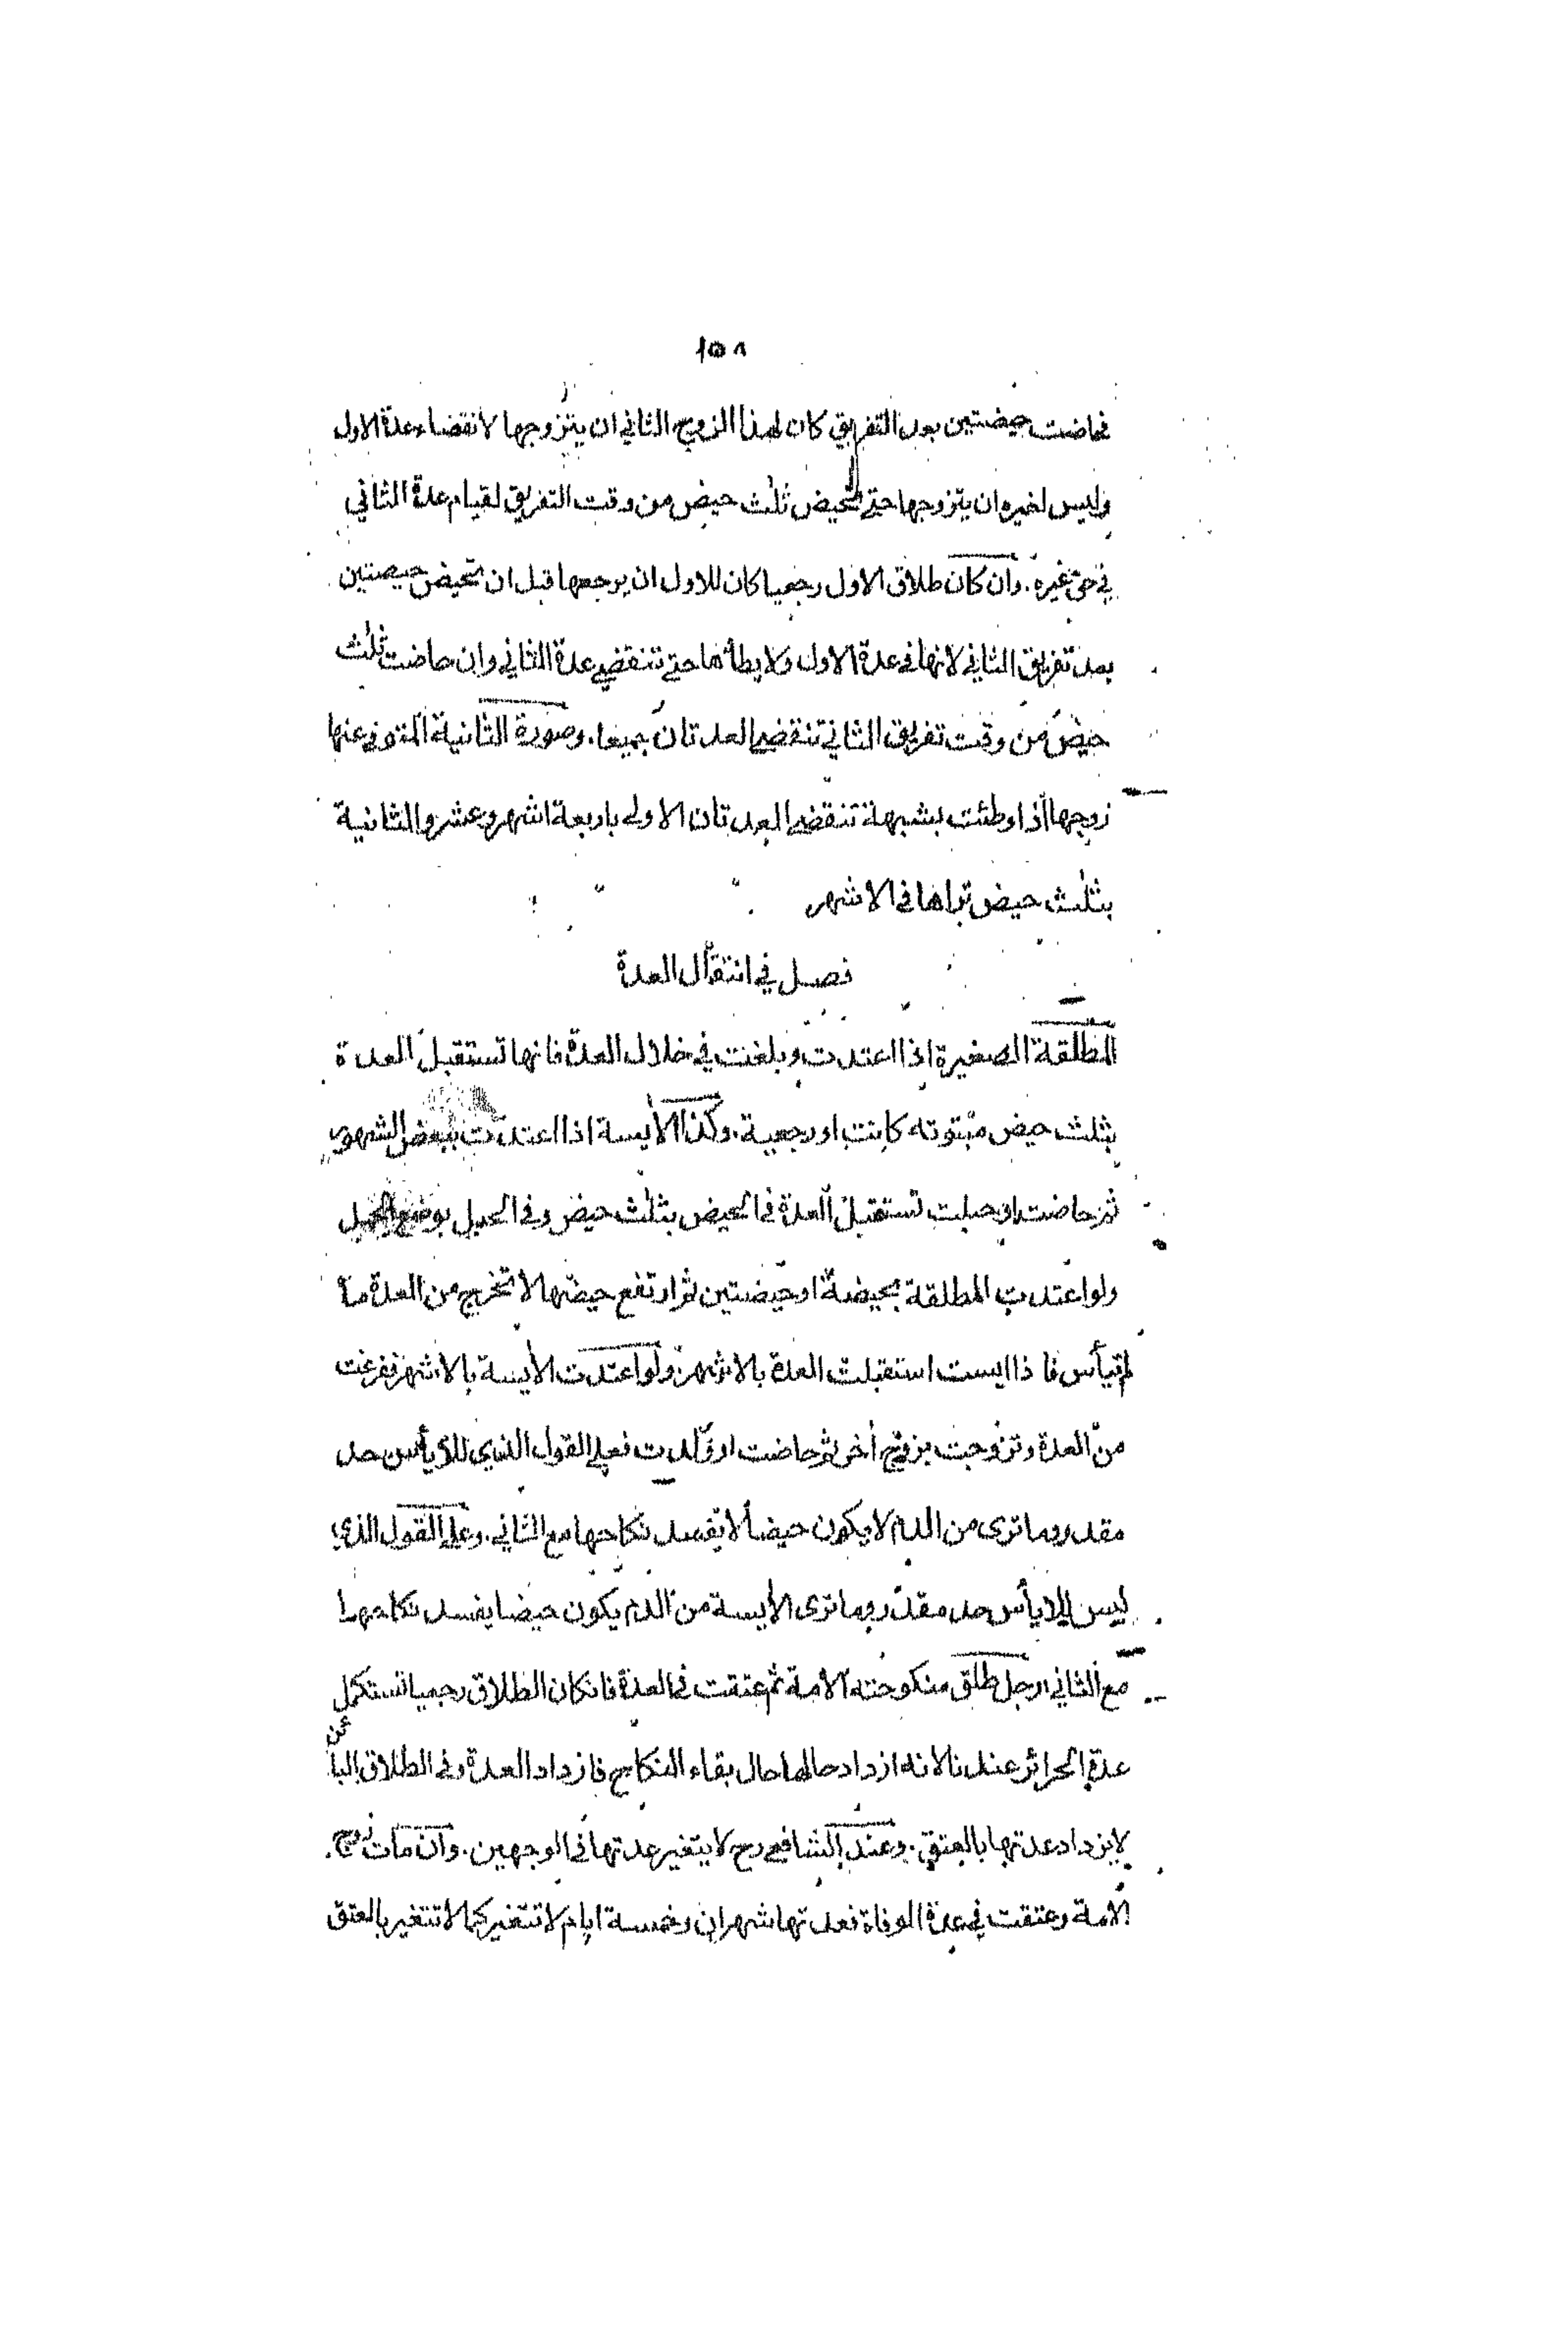 ١٥٨
فحاضت حيضتين بعد التفريق كان لهذا الزوج الثاني ان يتزوجها لانقضاء عدة الاول
وليس لغيره ان يتزوجها حتى تحيض ثلث حيض من وقت التفريق لقيام عدة الثاني
في حق غيره . وان كان طلاق الاول رجعيا كان للاول ان يرجعها قبل ان تحيض حيضتين
بعد تفريق الثاني لانها في عدة الاول ولا يطأها حتى تنقضي عدة الثاني وان حاضت ثلث
حيض من وقت تفريق الثاني تنقضي العدتان جميعا . وصورة الثانية المتوفى عنها
زوجها اذا وطئت بشبهة تنقضي العدتان الاولى باربعة اشهر وعشر والثانية
بثلث حيض تراها في الاشهر
فصل في انتقال العدة
المطلقة الصغيرة اذا اعتدت وبلغت في خلال العدة فانها تستقبل العدة
بثلث حيض مبتوته كانت او رجعية . وكذا الأيسة اذا اعتدت ببعض الشهور
ثم حاضت او حبلت تستقبل العدة في الحيض بثلث حيض وفي الحبل بوضع الحمل
ولو اعتدت المطلقة بحيضة او حيضتين ثم ارتفع حيضها لا تخرج من العدة ما
لم تيأس فاذا ايست استقبلت العدة بالاشهر ولو اعتدت الأيسة بالاشهر ففرغت
من العدة وتزوجت بزوج أخر ثم حاضت او ولدت فعلى القول الذي للاياس حد
مقدر وما ترى من الدم لا يكون حيضا لا يفسد نكاحها مع الثاني . وعلى القول الذي
ليس للاياس حد مقدر وما ترى الأيسة من الدم يكون حيضا يفسد نكاحها
مع الثاني رجل طلق منكوحته الامة ثم عتقت في العدة فان كان الطلاق رجعيا تستكمل
عدة الحرائر عندنا لانه ازداد حالها حال بقاء النكاح فازداد العدة وفي الطلاق البائن
لا يزداد عدتها بالعتق . وعند الشافعي رح لا يتغير عدتها في الوجهين . وان مات زوج
الامة وعتقت في عدة الوفاة فعدتها شهران وخمسة ايام لا تتغير كما لا تتغير بالعتق